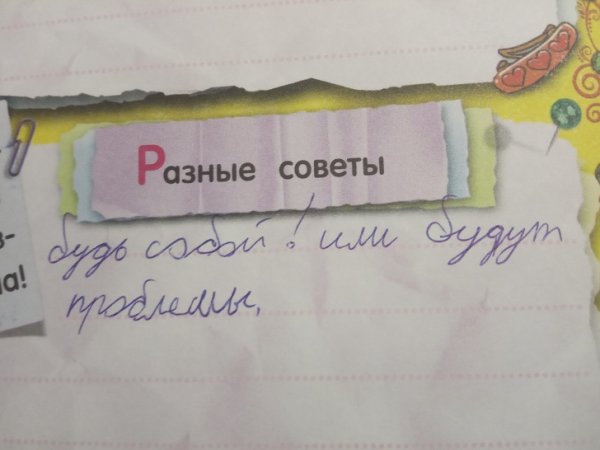 Разные советы
з-
а!
будь собой! или будут
проблемы.